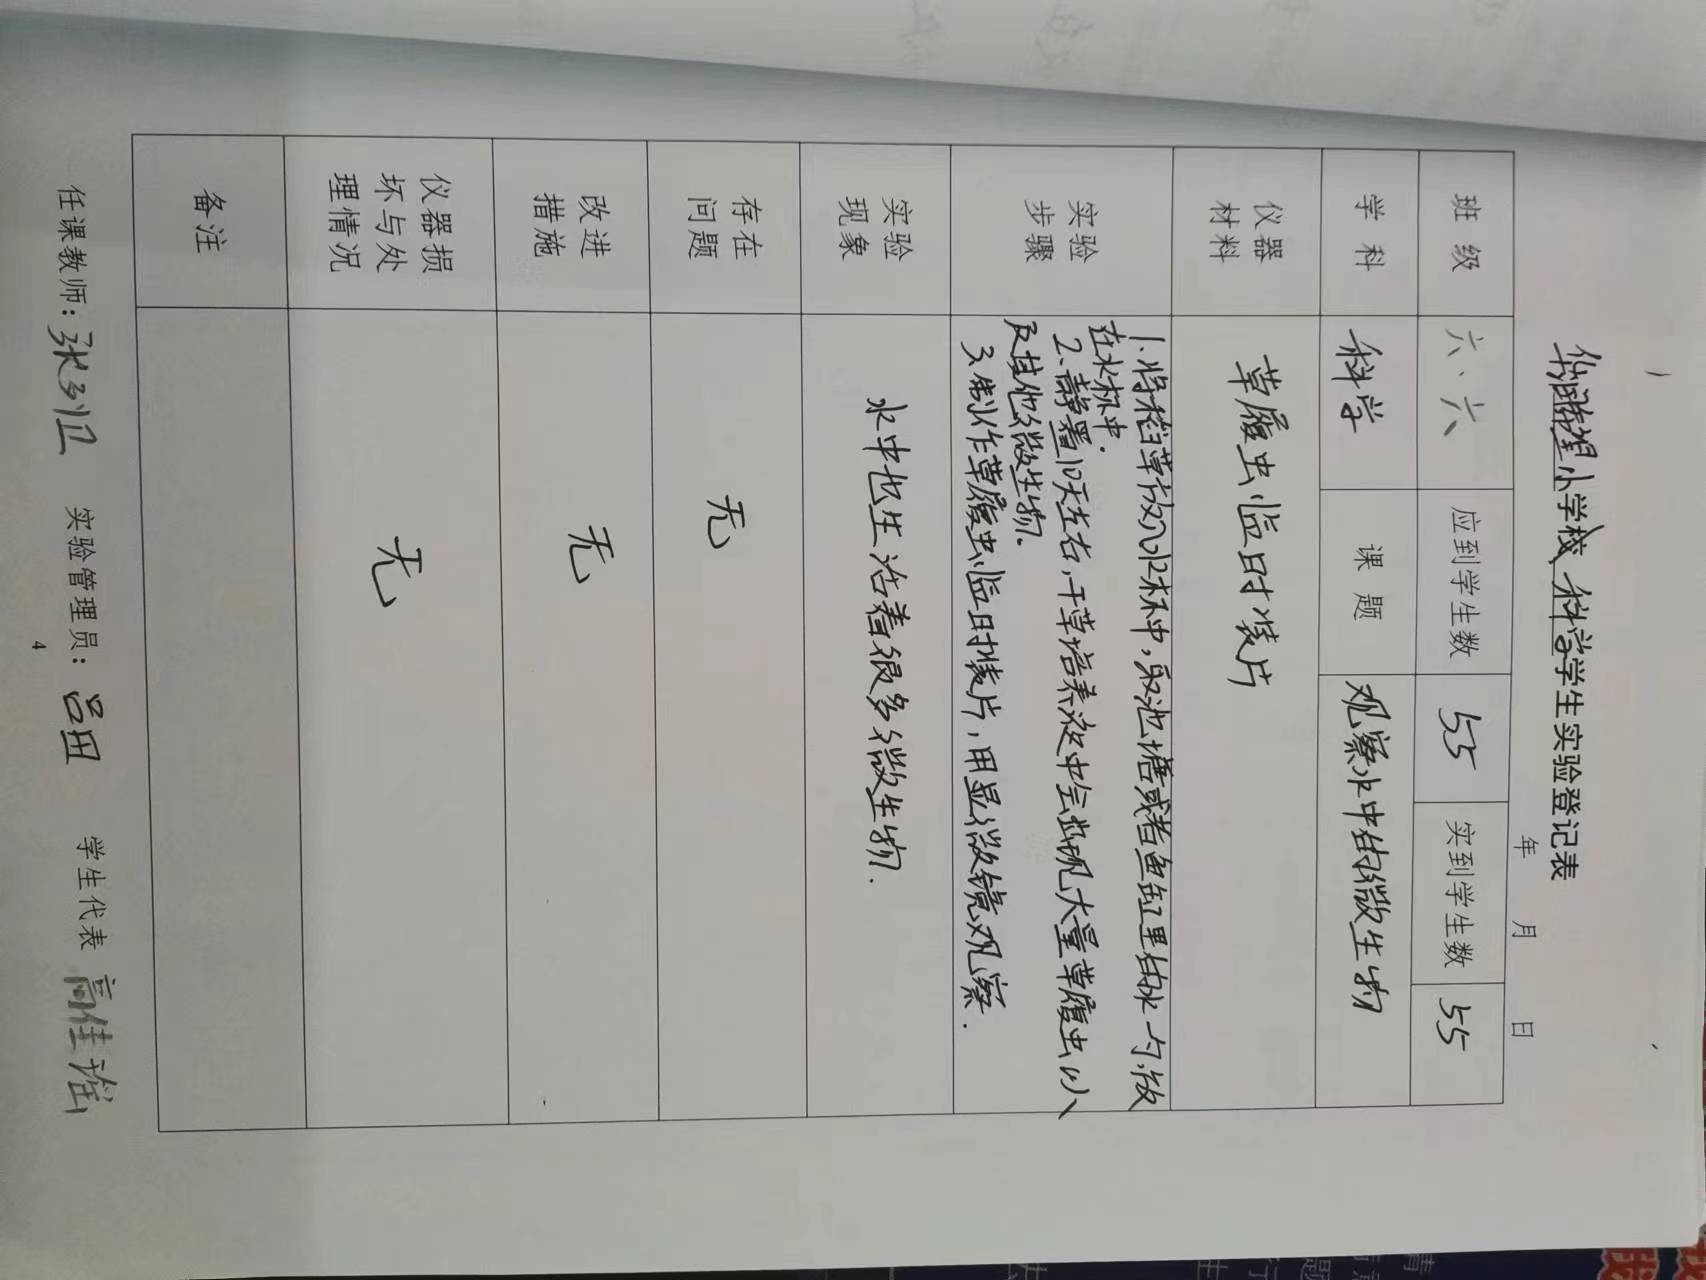 华润希望小学校 科学学生实验登记表
年 月 日
班级 六、六 应到学生数 55 实到学生数 55
学科 科学 课题 观察水中的微生物
仪器材料 草履虫临时装片
实验步骤
1.将稻草放入水杯中,取池塘或者鱼缸里的水一勺,放
在水杯中.
2.静置10天左右,干草培养液中会出现大量草履虫以
及其他微生物.
3.制作草履虫临时装片,用显微镜观察.
实验现象 水中也生活着很多微生物.
存在问题 无
改进措施 无
仪器损坏与处理情况 无
备注
任课教师: 实验管理员:吕田 学生代表 高佳瑶
4